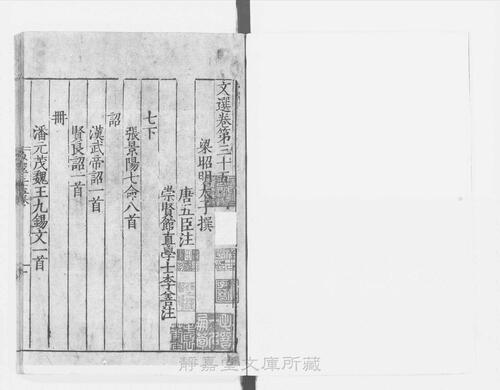 文選卷第三十五
梁昭明太子撰
唐五臣注
崇賢館直學士李善注
七下
張景陽七命八首
詔
漢武帝詔一首
賢良詔一首
冊
潘元茂魏王九錫文一首
靜嘉堂文庫所藏